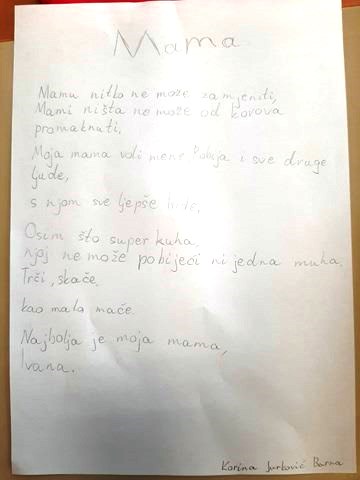 Mama
Mamu nitko ne može zamjeniti,
Mami ništa ne može od korova
promaknuti,
Moja mama voli mene Tobija i sve druge
ljude,
s njom sve ljepše bude,
Osim što super kuha,
njoj ne može pobijeći ni jedna muha.
Trči, skače,
kao mala mače.
Najbolja je moja mama,
Ivana.
Korina Jurković Barna